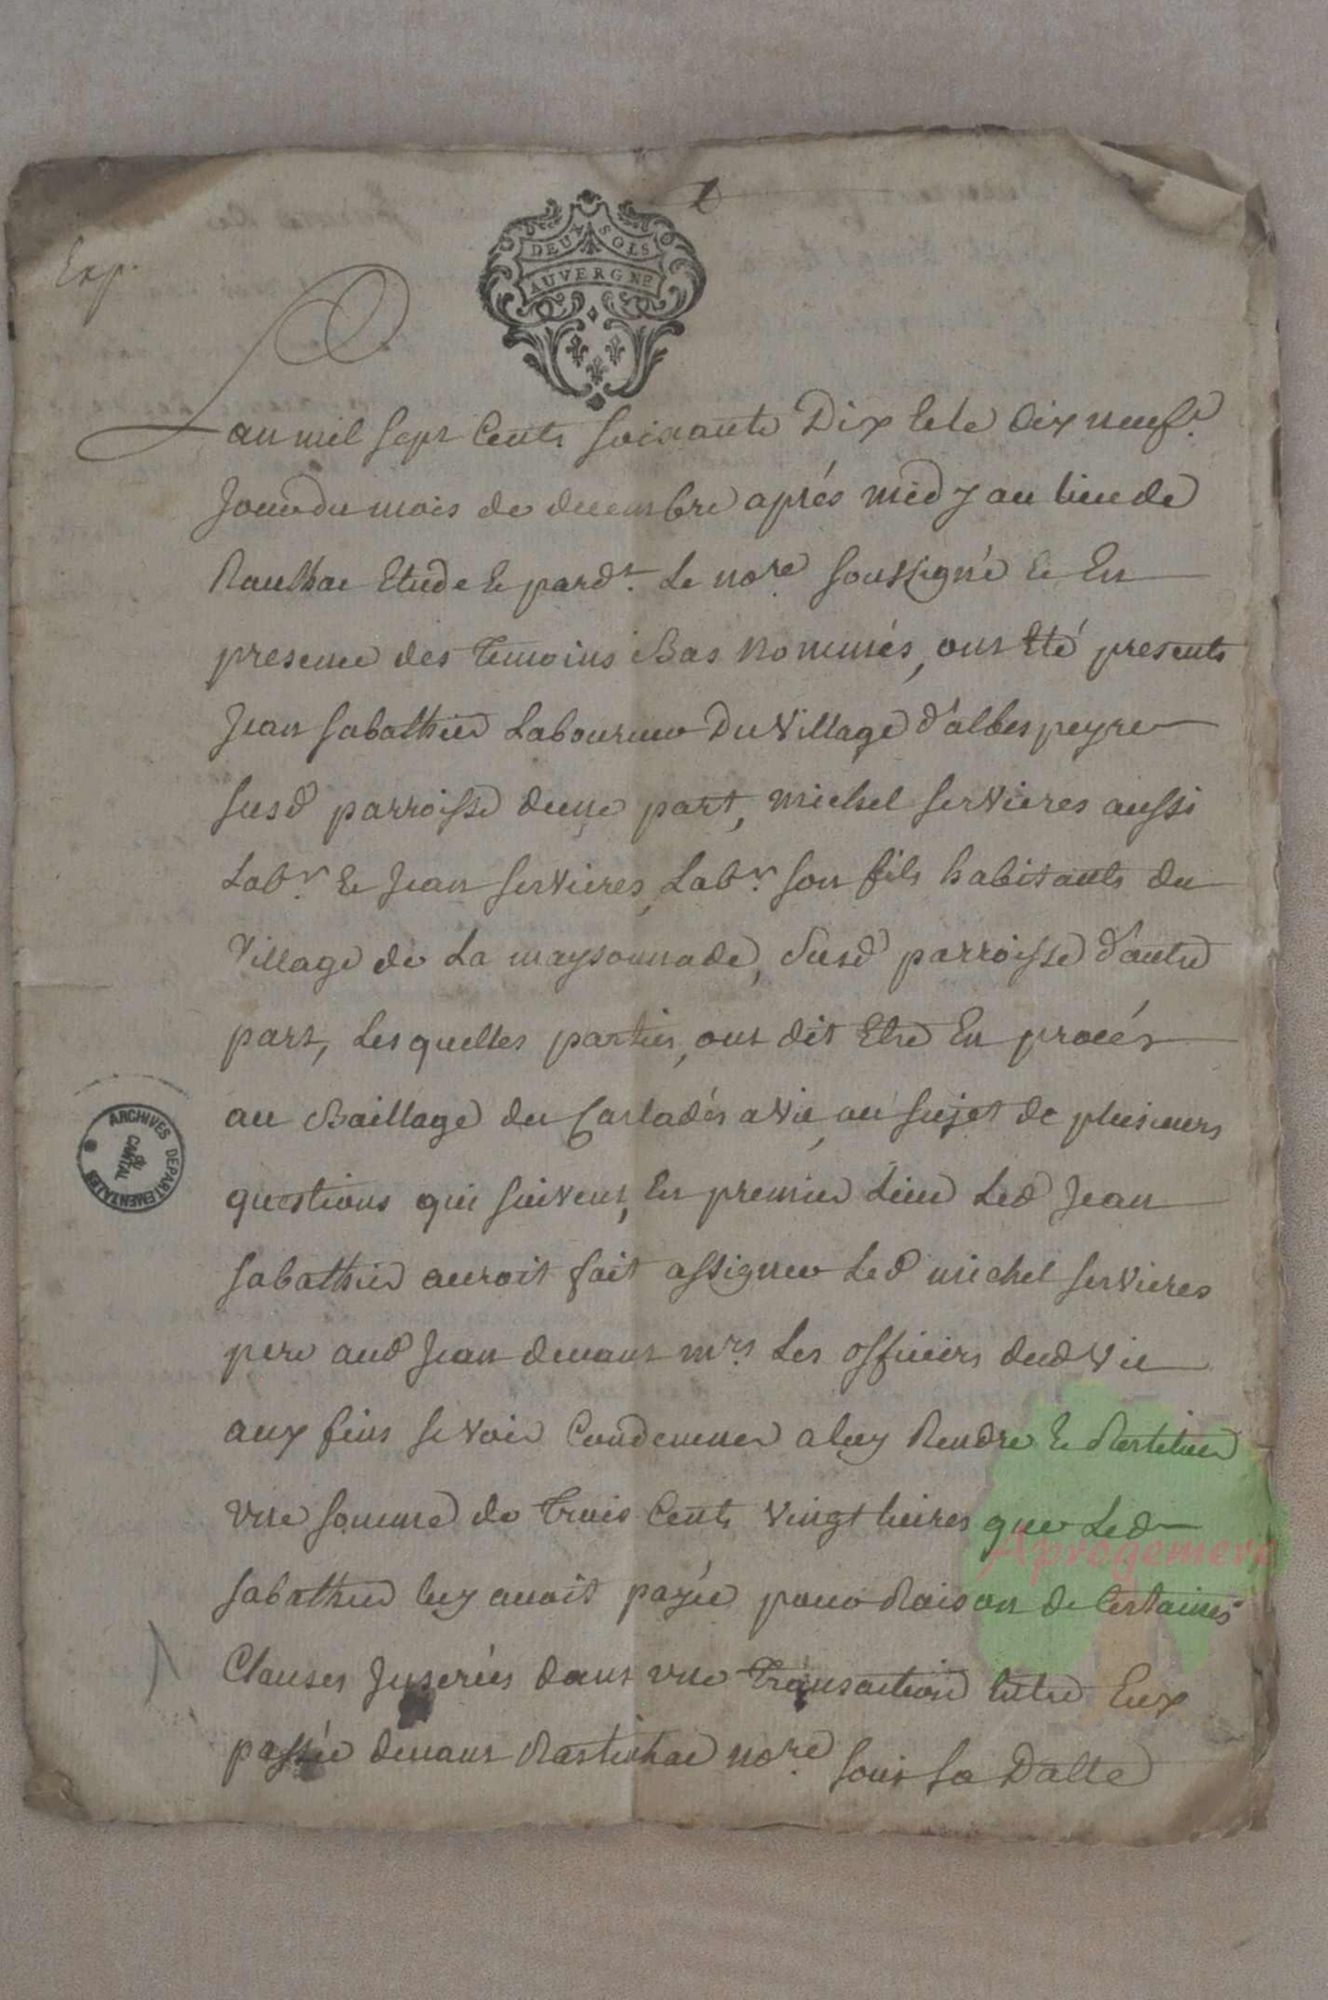 Exp.
DEUX SOLS
AUVERGNE
Lan mil sept Cents soixante Dix & le dix neuf.e
Jour du mois de decembre aprés midy au lieu de
Raulhac Etude & pard.t Le no.re soussigné & En
presence des temoins Bas nommés, ont Eté presents
Jean Sabathier Laboureur Du Village d'albespeyre
susd parroisse dune part, michel servieres aussi
Lab.r & Jean servieres, Lab.r son fils habitants du
Village de La maysonnade, susd parroisse d'autre
part, Lesquelles parties, ont dit Etre En procés
au Baillage du Carladés a Vic, au sujet de plusieurs
questions qui suivent, En premier Lieu Led Jean
Sabathier auroit fait assigner Led michel servieres
pere aud Jean devant m.rs Les officiers dud Vic
aux fins se voir Condemner a luy Rendre & Restituer
une somme de trois Cents vingt livres que Led
Sabathier luy avoit payée pour Raison de Certaines
Clauses Jnserées dans une transaction Entre Eux
passée devant Rastinhac no.re sous sa Datte
ARCHIVES DEPARTEMENTALES
DU
CANTAL
Aprogemere